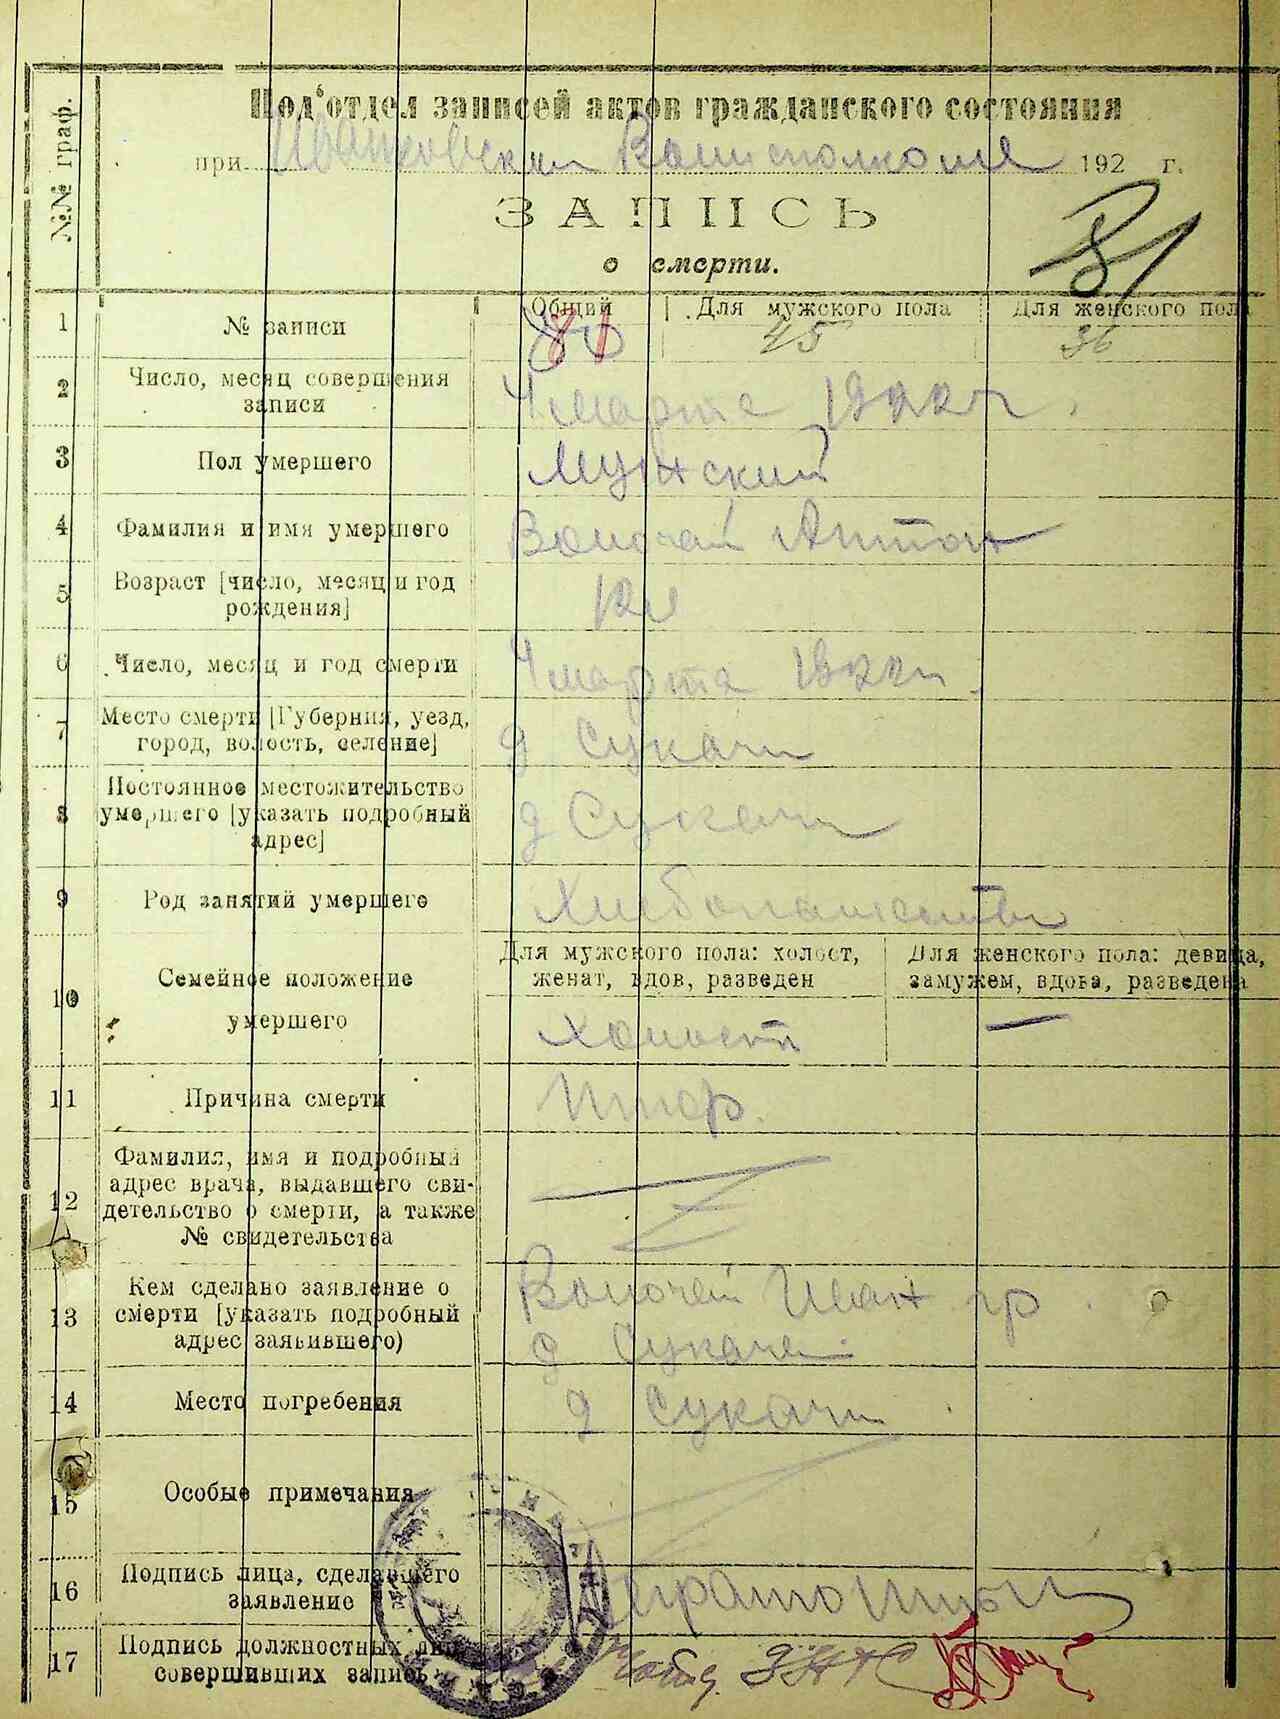 Под'отдел записей актов гражданского состояния
при Иванковским Волисполкоме 192 г.
ЗАПИСЬ
о смерти.
81
№№ граф.
1 № записи
Общий Для мужского пола Для женского пола
81 45 36
2 Число, месяц совершения записи
4 марта 1922 г.
3 Пол умершего
Мужский
4 Фамилия и имя умершего
Волочай Антон
5 Возраст [число, месяц и год рождения]
12 л
6 Число, месяц и год смерти
4 марта 1922 г.
7 Место смерти [Губерния, уезд, город, волость, селение]
д Сукачи
8 Постоянное местожительство умершего [указать подробный адрес]
д Сукачи
9 Род занятий умершего
Хлебопашество
10 Семейное положение умершего
Для мужского пола: холост, женат, вдов, разведен
Для женского пола: девица, замужем, вдова, разведена
Холост
—
11 Причина смерти
12 Фамилия, имя и подробный адрес врача, выдавшего свидетельство о смерти, а также № свидетельства
13 Кем сделано заявление о смерти [указать подробный адрес заявившего)
Волочай Иван гр
д Сукачи
14 Место погребения
д Сукачи
15 Особые примечания
16 Подпись лица, сделавшего заявление
Неграмотный
17 Подпись должностных лиц совершивших запись
ЗАГС